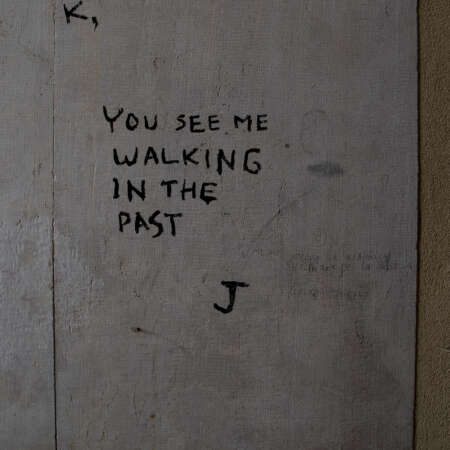 K,
YOU SEE ME
WALKING
IN THE
PAST
J